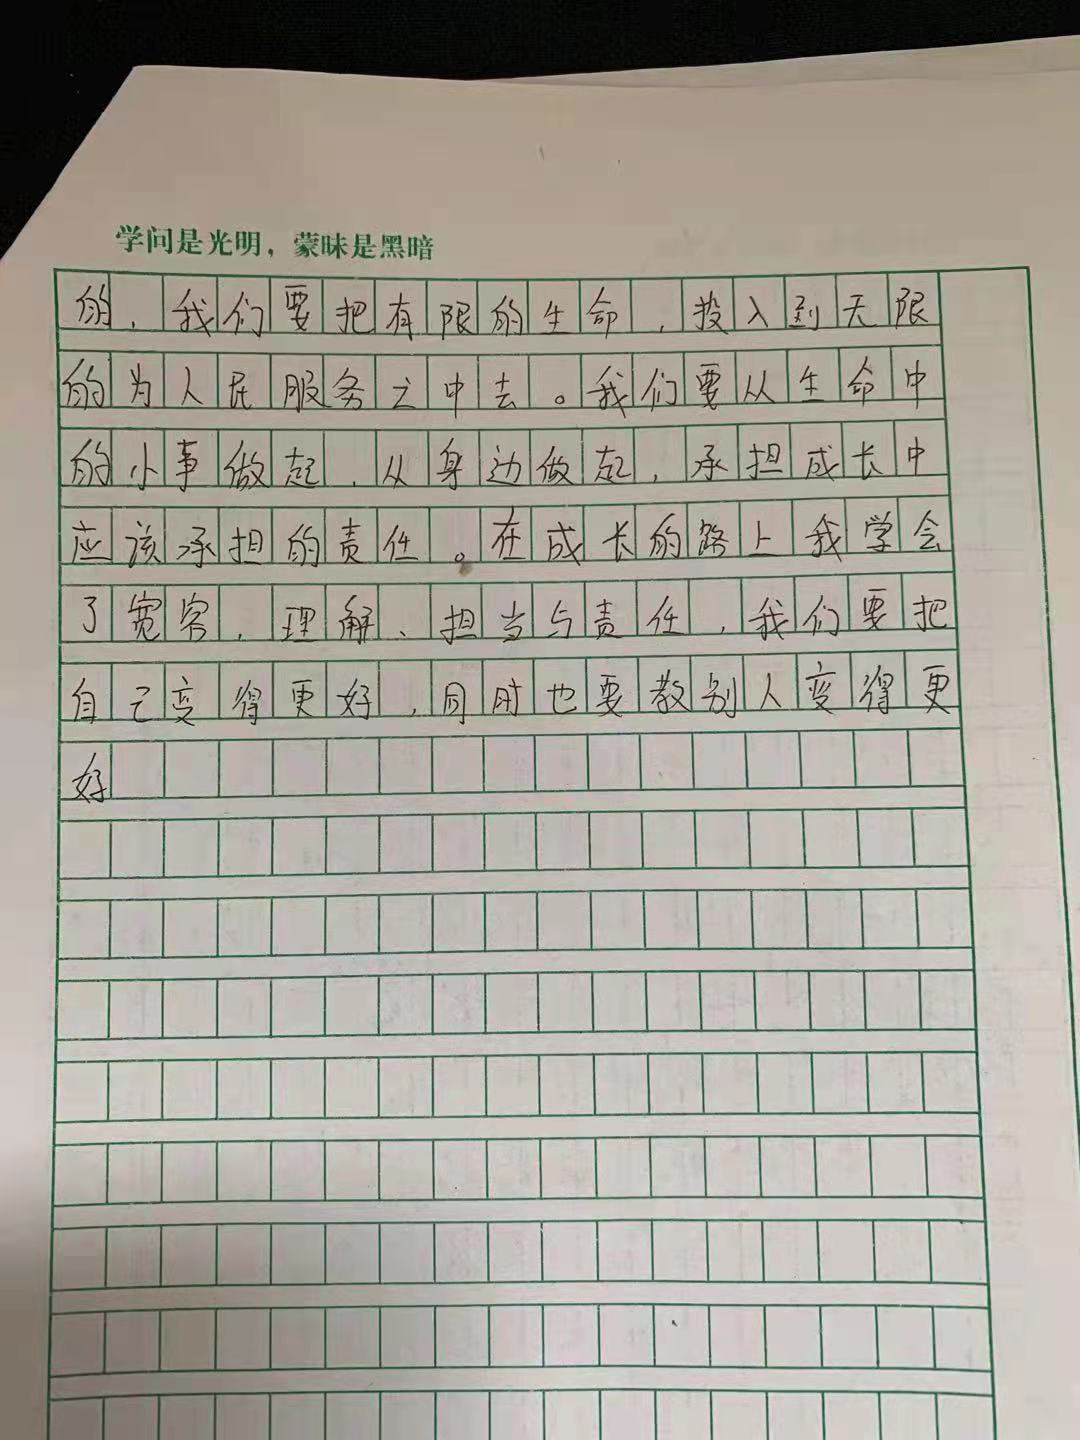 学问是光明，蒙昧是黑暗
的，我们要把有限的生命，投入到无限
的为人民服务之中去。我们要从生命中
的小事做起，从身边做起，承担成长中
应该承担的责任。在成长的路上我学会
了宽容，理解、担当与责任，我们要把
自己变得更好，同时也要教别人变得更
好